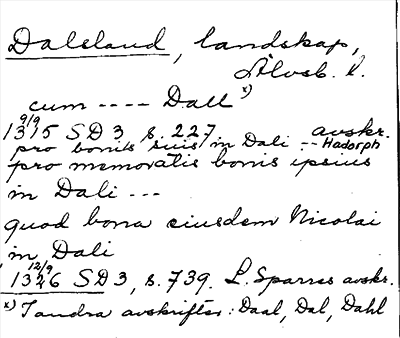 Dalsland, landskap,
Älvsb. l.
cum ---- Dall x)
1315 9/9 SD 3, s. 227 avskr.
pro bonis suis in Dali -- Hadorph
pro memoratis bonis ipsius
in Dali ---
quod bona eiusdem Nicolai
in Dali
1326 12/9 SD 3, s. 739. L. Sparres avskr.
x) Tandra avskrifter: Daal, Dal, Dahl